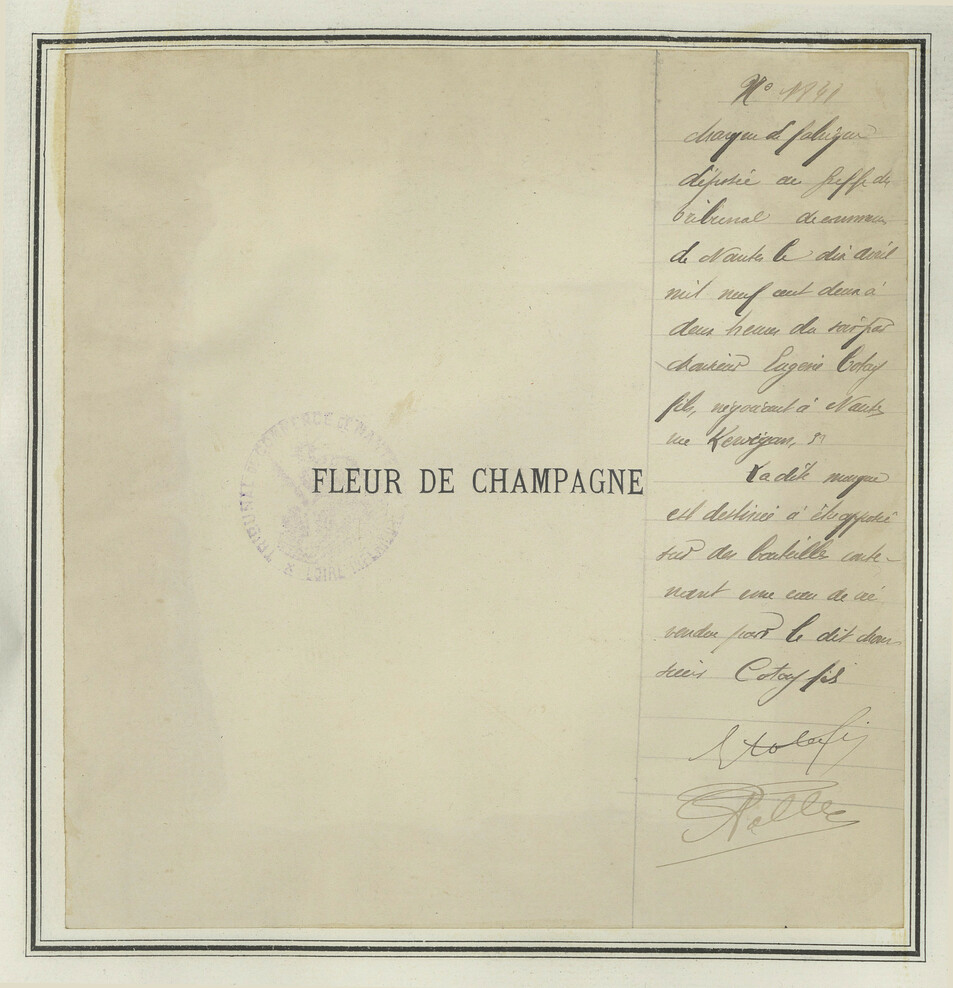 TRIBUNAL DE COMMERCE DE NANTES
* LOIRE INFERIEURE
FLEUR DE CHAMPAGNE
N°
Marque de fabrique
déposée au Greffe du
tribunal de commerce
de Nantes le dix avril
mil neuf cent deux à
deux heures du soir par
Monsieur Eugène Cotay
fils, négociant à Nantes
rue Kervégan,
Ladite marque
est destinée à être apposée
sur des bouteilles conte-
nant une eau de vie
vendue par le dit Mon
sieur Cotay fils